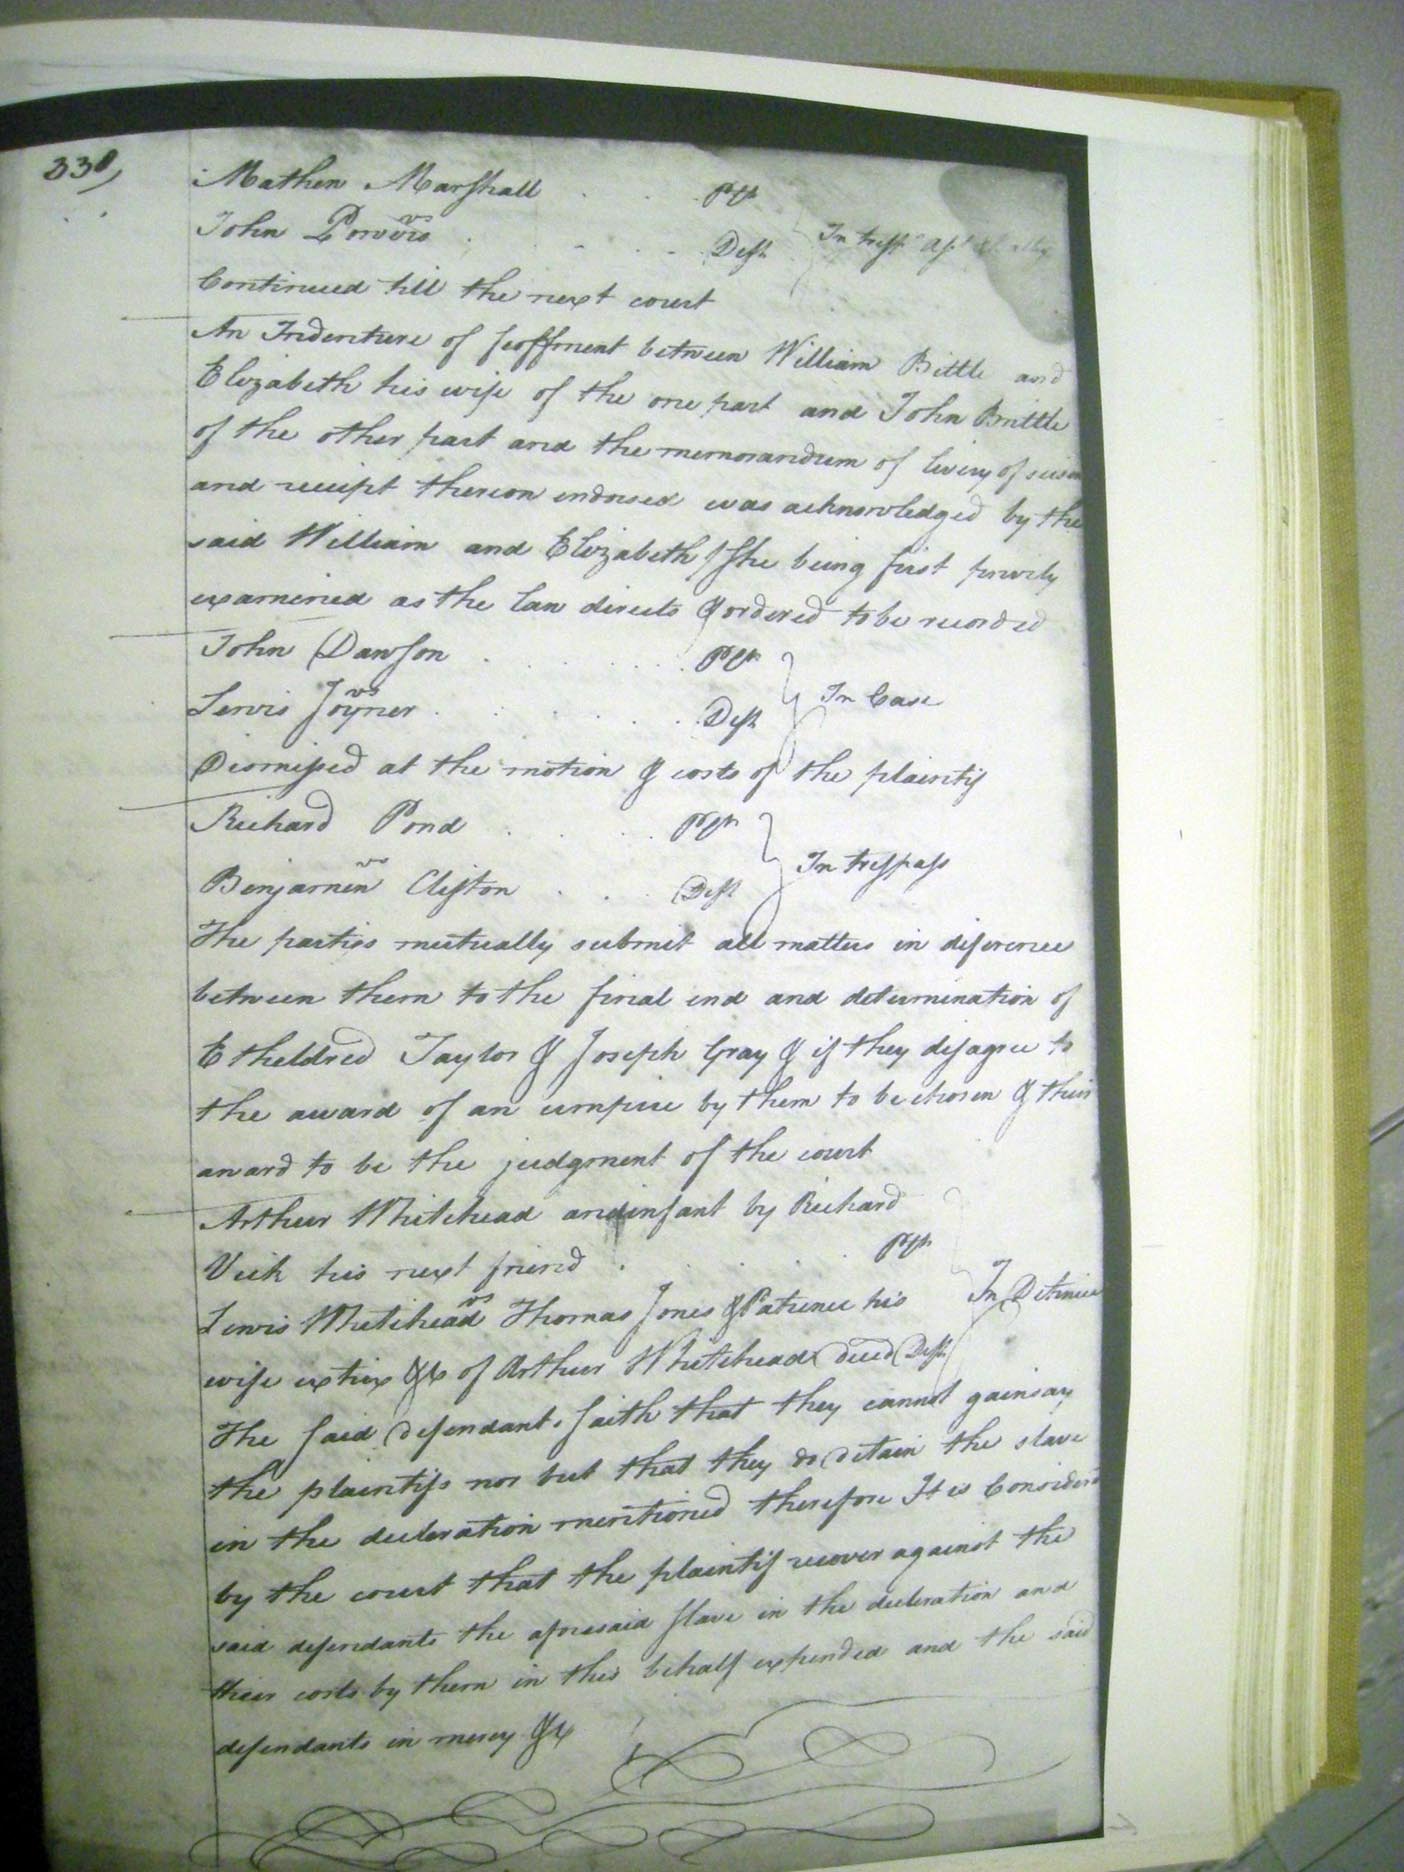 338,
Mathew Marshall . . . Pltf
vs
John Powers . . . . Deft In tresp
Continued till the next court
An Indenture of feoffment between William Bittle and
Elizabeth his wife of the one part and John Brittle
of the other part and the memorandum of livery of seisin
and receipt thereon endorsed was acknowledged by the
said William and Elizabeth /She being first privily
examined as the law directs & ordered to be recorded
John Dawson . . . . . . Pltf
vs In Case
Lewis Joyner . . . . . . Deft
Dismissed at the motion & costs of the plaintif
Richard Pond . . . . Pltf
vs In trespass
Benjamin Clifton . . . Deft
The parties mutually submit all matters in diference
between them to the final end and determination of
Etheldred Taylor & Joseph Gray & if they disagree to
the award of an umpire by them to be chosen & their
award to be the judgment of the court
Arthur Whitehead an infant by Richard
Vick his next friend . . . . . Pltf
vs In Detinue
Lewis Whitehead Thomas Jones & Patience his
wife extrix &c of Arthur Whitehead decd Deft
The said defendants saith that they cannot gainsay
the plaintifs nor but that they do detain the slave
in the decleration mentioned therefore It is Considerd
by the court that the plaintif recover against the
said defendants the aforesaid slave in the decleration and
their costs by them in this behalf expended and the said
defendants in mercy &c